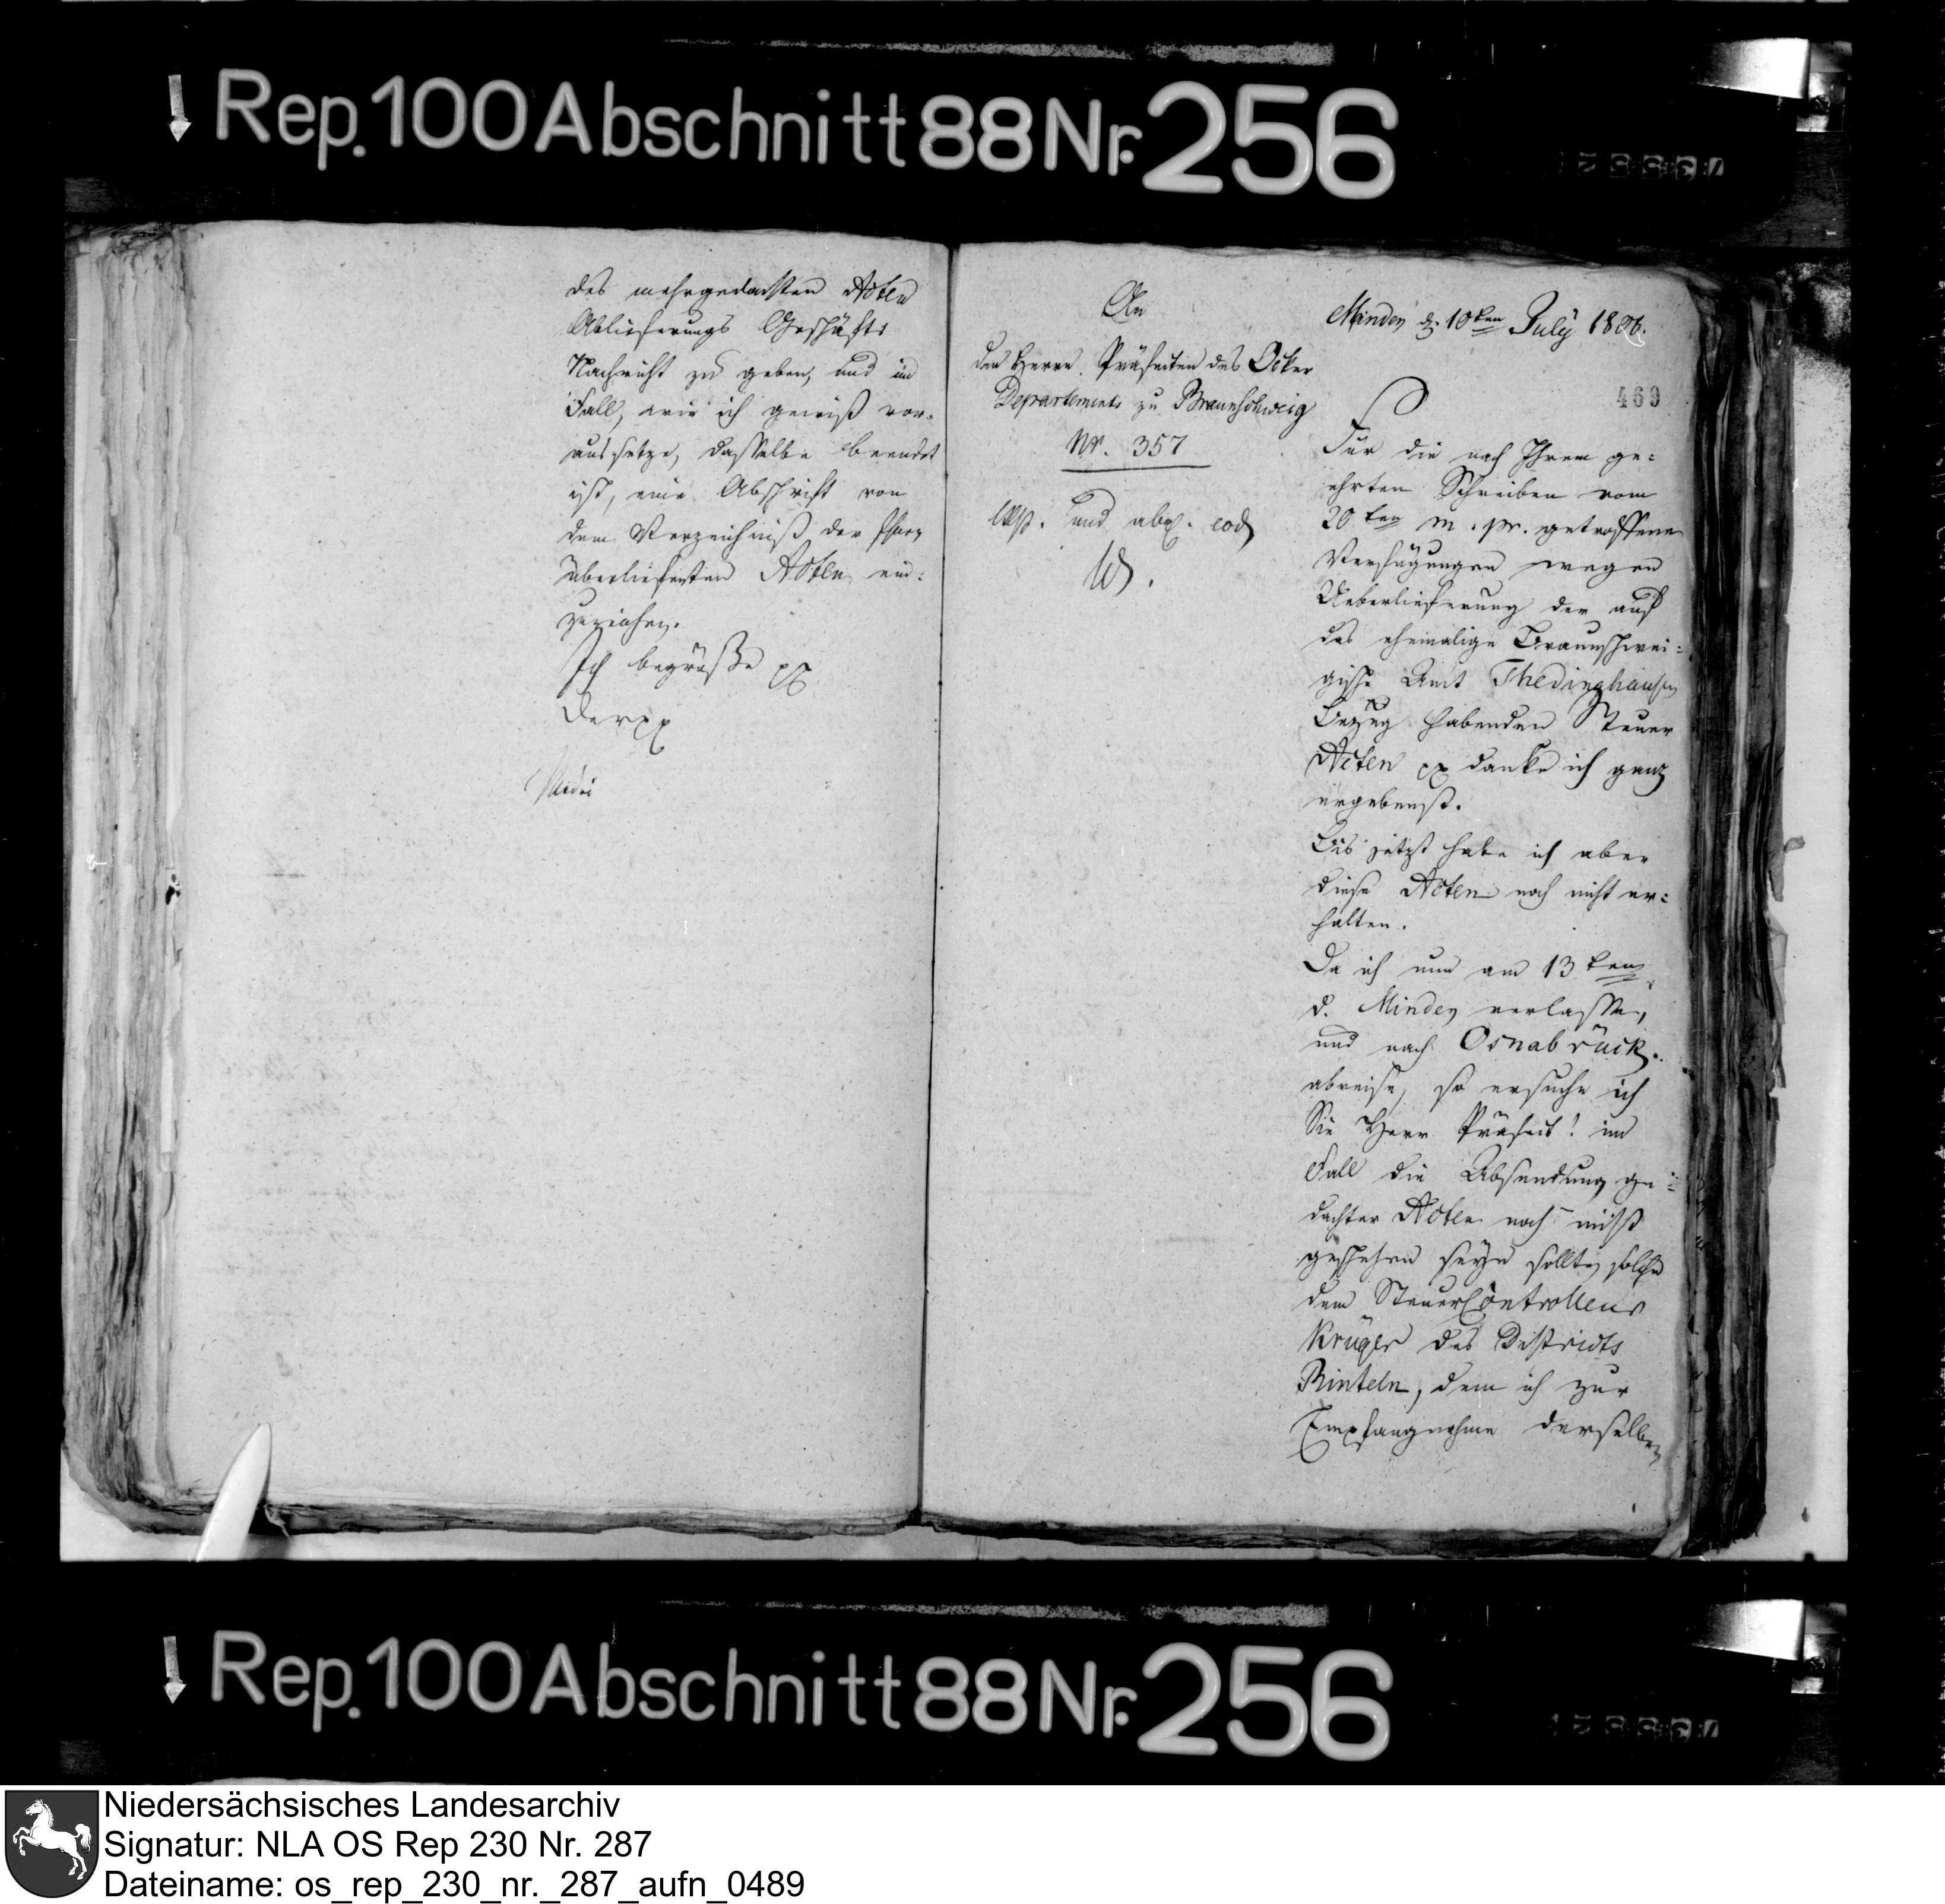 Rep. 100 Abschnitt 88 Nr. 256
des mehrgedachten Acten
Ablieferungs Geschäfts
Nachricht zu geben, und im
Fall, wie ich gewiß vor-
aussetze, dasselbe beendet
ist, eine Abschrift von
dem Verzeichniß der
überlieferten Acten ein-
zureichen.
Ich begrüße pp
Der pp
An
den Herrn Präfecten des Ocker
Departements zu Braunschweig
Nr. 357
und abg. eod
Minden d. 10ten July 1808.
469
Für die nach Ihrem ge-
ehrten Schreiben vom
20ten m. pr. getroffene
Verfügungen wegen
Ueberlieferung der auf
das ehemalige Braunschwei-
gische Amt Thedinghausen
Bezug habenden Steuer
Acten pp danke ich ganz
ergebenst.
Bis jetzt habe ich aber
diese Acten noch nicht er-
halten.
Da ich nun am 13ten
d. Minden verlasse,
und nach Osnabrück
abreise, so ersuche ich
Sie Herr Präfect! im
Fall die Absendung ge-
dachter Acten noch nicht
geschehen seyn sollte, solche
dem SteuerControlleur
Krüger des Districts
Rinteln, dem ich zur
Empfangnahme derselben
Rep. 100 Abschnitt 88 Nr. 256
Niedersächsisches Landesarchiv
Signatur: NLA OS Rep 230 Nr. 287
Dateiname: os_rep_230_nr._287_aufn_0489